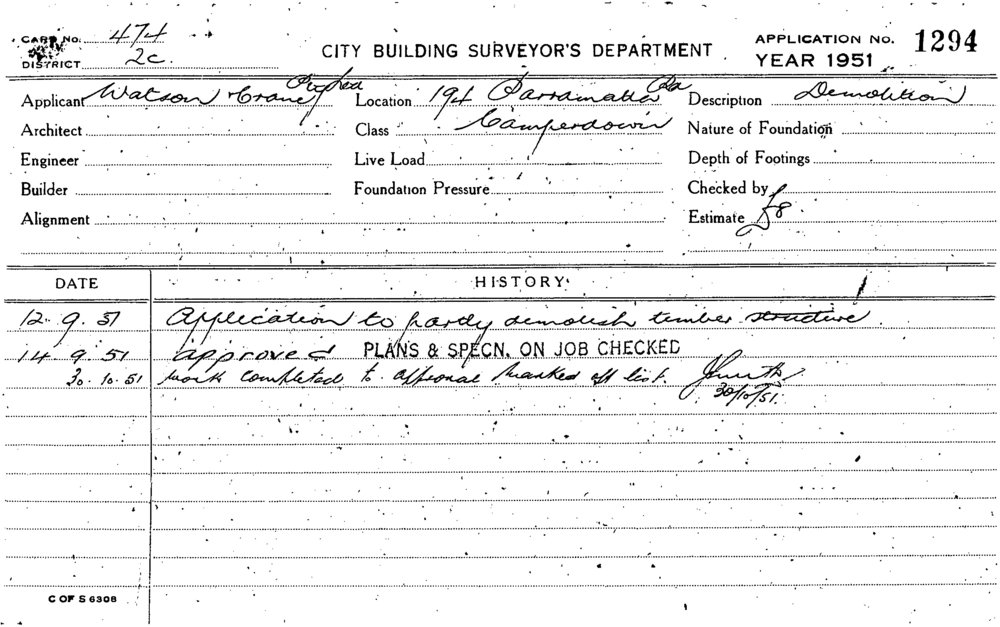 CARD No. 474
DISTRICT 2c.
CITY BUILDING SURVEYOR'S DEPARTMENT
APPLICATION No. 1294
YEAR 1951
Applicant Watson Crane Pty Ltd
Location 194 Parramatta Rd
Description Demolition
Architect
Class Camperdown
Nature of Foundation
Engineer
Live Load
Depth of Footings
Builder
Foundation Pressure
Checked by
Alignment
Estimate £8
DATE HISTORY
12. 9. 51 Application to partly demolish timber structure.
14. 9. 51 approved PLANS & SPECN. ON JOB CHECKED
30. 10. 51 work completed to approval marked off list.
30/10/51.
C OF S 6308